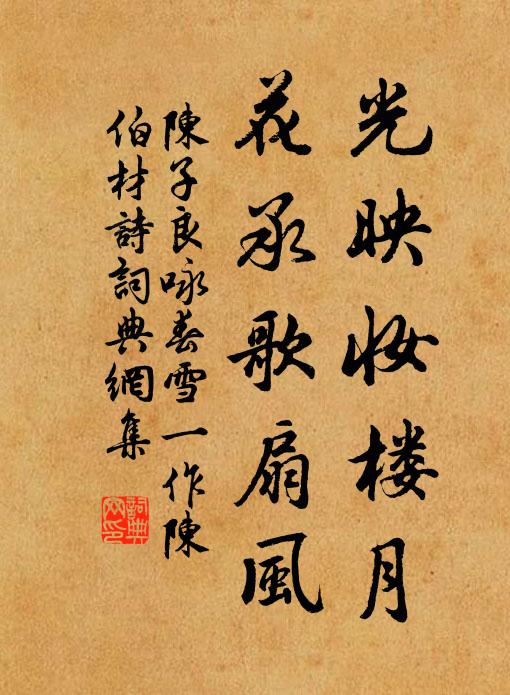 光映妆楼月
花承歌扇風
陳子良咏春雪一作陳
伯材詩詞典網集
詞典网印